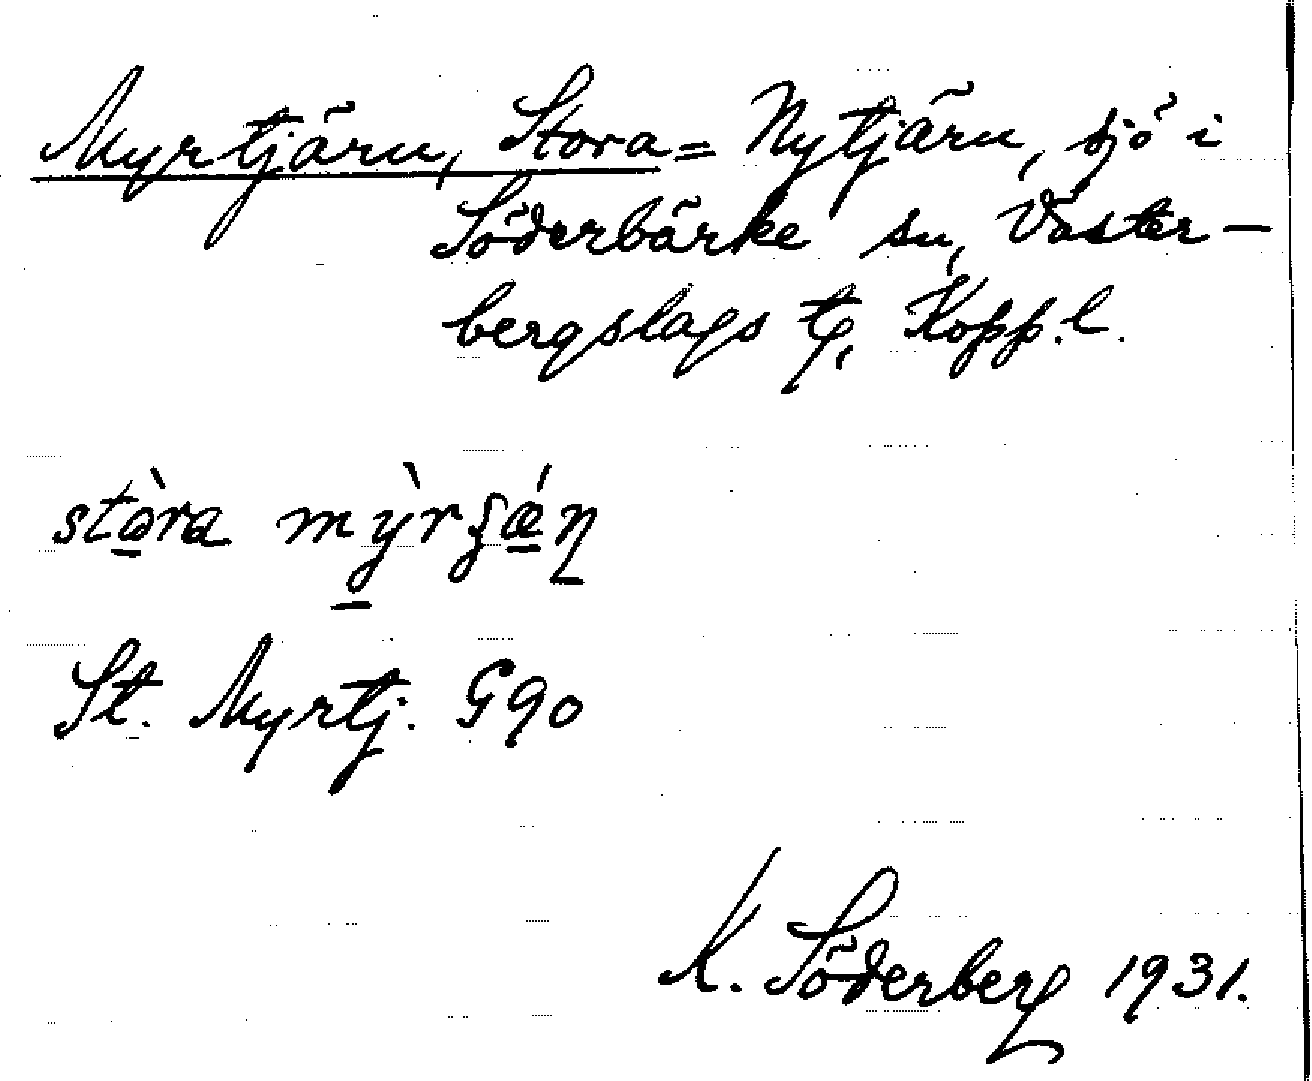 Myrtjärn, Stora = Nytjärn, sjö i
Söderbärke sn, Väster-
bergslags tg, Kopp.l.
stòra mỳrʂǽɳ
St. Myrtj. G90
K. Söderberg 1931.